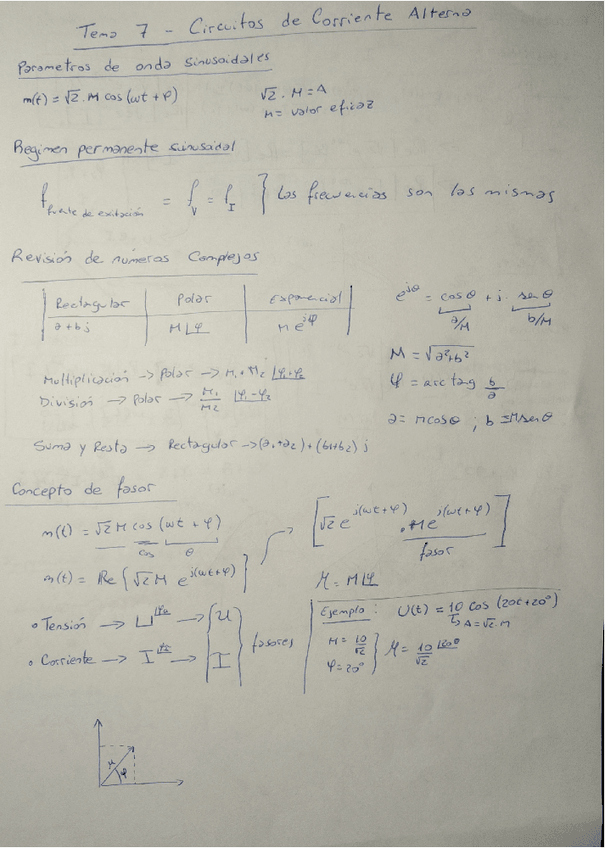 Tema 7 - Circuitos de Corriente Alterna
Parametros de onda sinusoidales
m(t) = √2 . M cos (ωt + φ)
√2 . M = A
M = valor eficaz
Regimen permanente sinusoidal
f fuente de exitación = f_V = f_I } Las frecuencias son las mismas
Revisión de números Complejos
Rectangular | Polar | Exponencial
a + bj | M∠φ | M e^jφ
e^jθ = cos θ + j . sen θ
a/M b/M
M = √a²+b²
φ = arc tag b/a
a = M cos θ ; b = M sen θ
Multiplicación -> Polar -> M₁ · M₂ ∠φ₁+φ₂
División -> Polar -> M₁/M₂ ∠φ₁-φ₂
Suma y Resta -> Rectangular -> (a₁+a₂) + (b₁+b₂) j
Concepto de fasor
m(t) = √2 M cos (ωt + φ)
cos θ
[√2 e^j(ωt+φ) . M e^j(ωt+φ)]
fasor
m(t) = Re {√2 M e^j(ωt+φ)}
M = M∠φ
• Tensión -> U -> U
• Corriente -> I -> I
fasores
Ejemplo: U(t) = 10 cos (20t+20°)
A = √2 . M
M = 10/√2
φ = 20°
M = 10/√2
M
φ